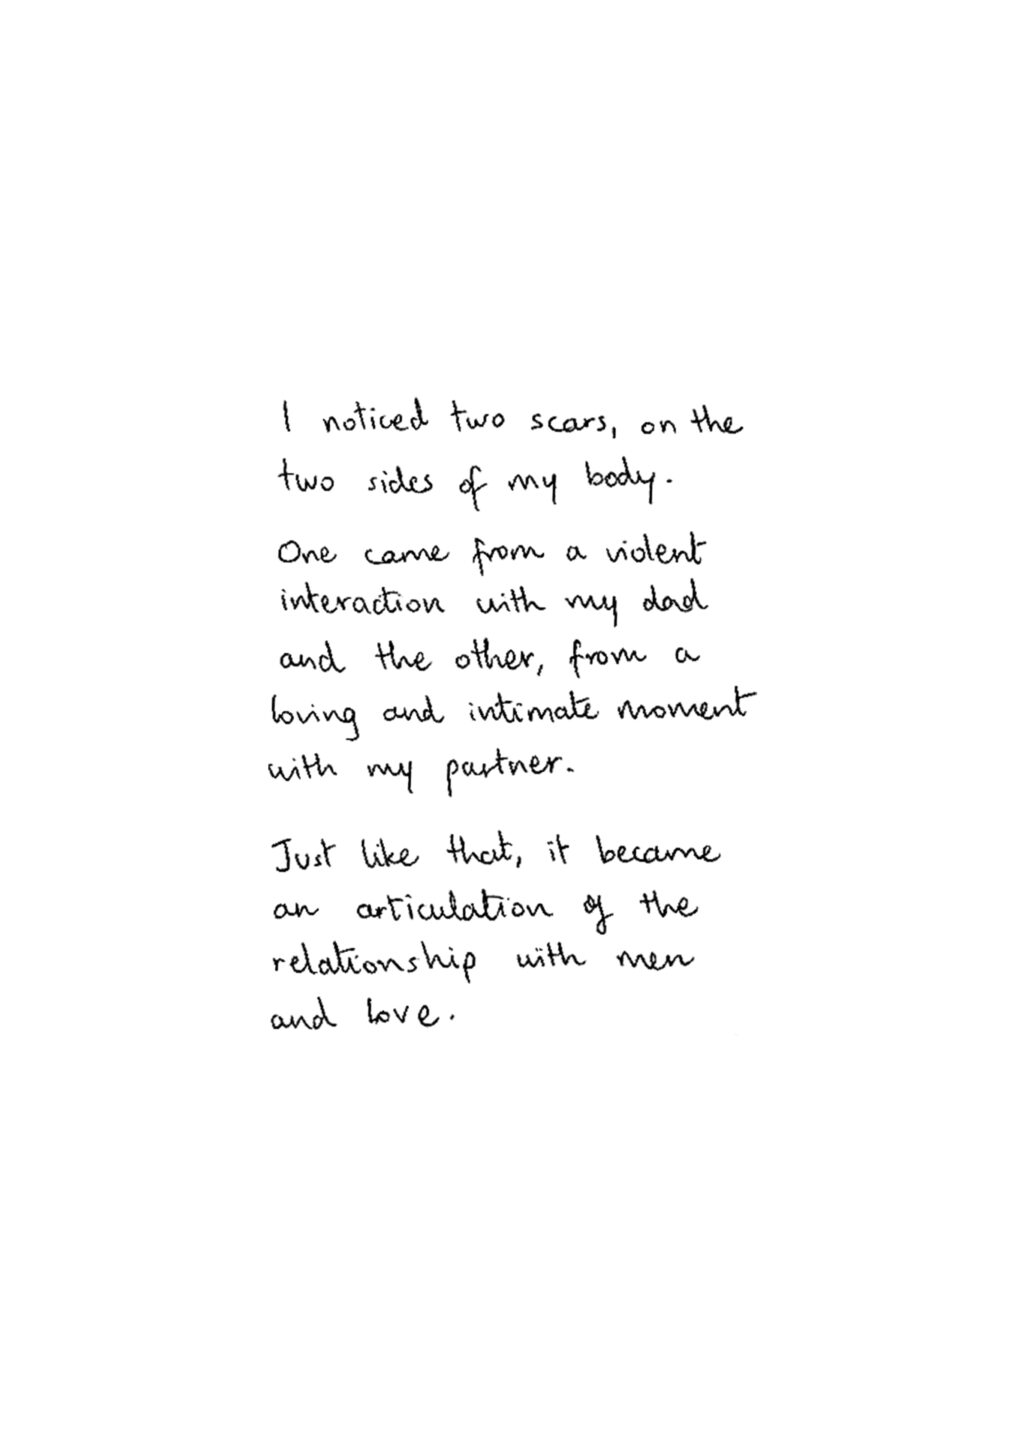 I noticed two scars, on the
two sides of my body.
One came from a violent
interaction with my dad
and the other, from a
loving and intimate moment
with my partner.
Just like that, it became
an articulation of the
relationship with men
and love.